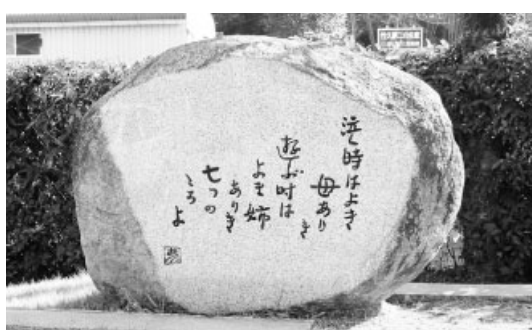 泣く時はよき
母あり
き
遊ぶ时は
よき姉
ありき
七つの
ころよ